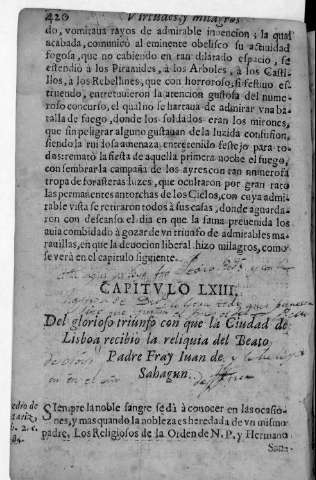 420 Virtudes, y milagros
do, vomitaua rayos de admirable inuencion; y la qual
acabada, comunicò al eminente obelisco su actiuidad
fogosa, que no cabiendo en tan dilatado espacio, se
estendiò a los Piramides, à los Arboles, à los Casti-
llos, à los Rebellines, que con horroroso, si festiuo es-
truendo, entretuuieron la atencion gustosa del nume-
roso concurso, el qual no se hartaua de admirar vna ba-
talla de fuego, donde los soldados eran los mirones,
que sin peligrar alguno gustauan de la luzida confusion,
siendo la ruidosa amenaza entretenido festejo para to-
dos: rematò la fiesta de aquella primera noche el fuego,
con sembrar la campaña de los ayres con tan numerosa
tropa de forasteras luzes, que ocultaron por gran rato
las permanentes antorchas de los Cielos, con cuya admi-
rable vista se retiraron todos à sus casas, donde aguarda-
ron con descanso el dia en que la fama preuenida los
auia combidado à gozar de vn triunfo de admirables ma-
rauillas, en que la deuocion liberal hizo milagros, como
se verà en el capitulo siguiente.
CAPITVLO LXIII.
Del glorioso triunfo con que la Ciudad de
Lisboa recibio la reliquia del Beato
Padre Fray Iuan de
Sahagun.
SIempre la noble sangre se dà à conocer en las ocasio-
nes, y mas quando la nobleza es heredada de vn mismo
padre. Los Religiosos de la Orden de N. P. y Hermano